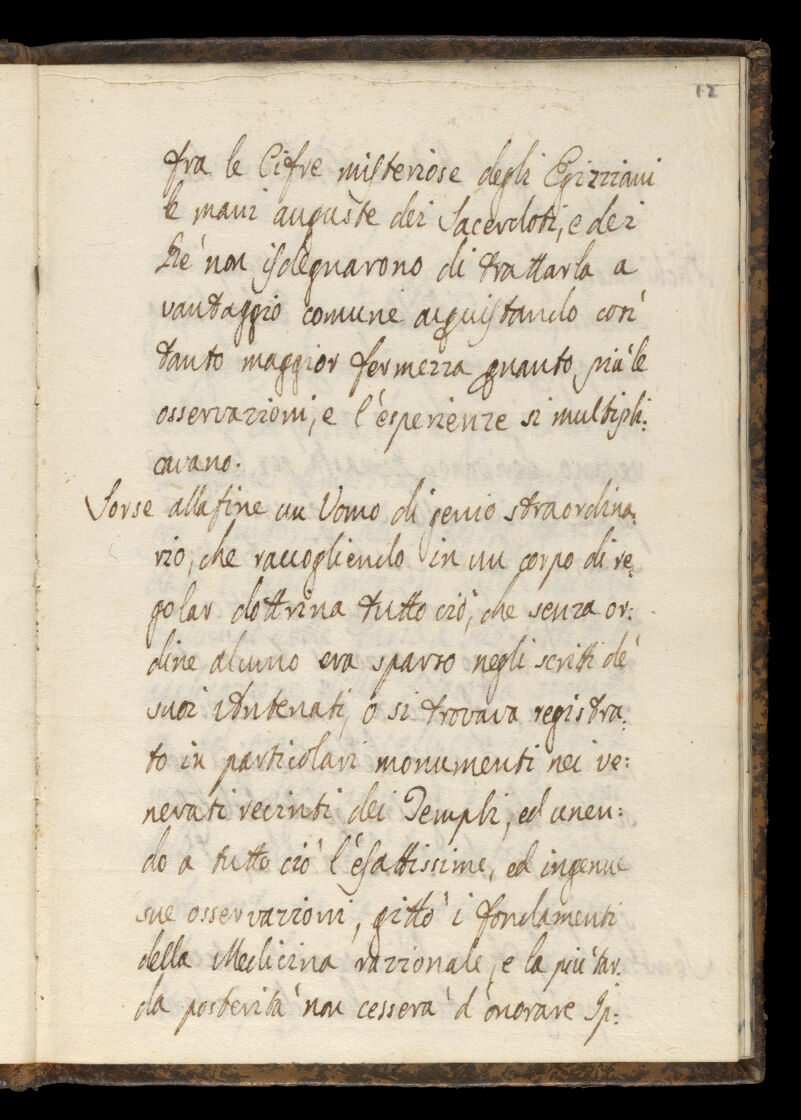 12
fra le Cifre misteriose degli Egizziani
le mani auguste dei Sacerdoti, e dei
Rè non isdegnarono di trattarla a
vantaggio comune acquistando così
tanto maggior fermezza quanto più le
osservazioni, e l'esperienze si multipli:
cavano.
Sorse alla fine un Uomo di genio straordina:
rio, che raccogliendo in un corpo di re:
golar dottrina tutto ciò, che senza or:
dine alcuno era sparso negli scritti de'
suoi Antenati, o si trovava registra:
to in particolari monumenti nei ve:
nerati recinti dei Templi, ed unen:
do a tutto ciò l'esattissime, ed ingenue
sue osservazioni, gittò i fondamenti
della Medicina razionale, e la più tar:
da posterità non cesserà d'onorare Ip: